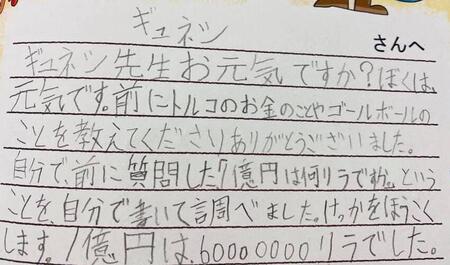 ギュネシ
さんへ
ギュネシ先生お元気ですか?ぼくは、
元気です。前にトルコのお金のことやゴールボールの
ことを教えてくださりありがとうございました。
自分で、前に質問した「1億円は何リラですか。という
ことを、自分で書いて調べました。けっかをほうこく
します。1億円は、60000000リラでした。